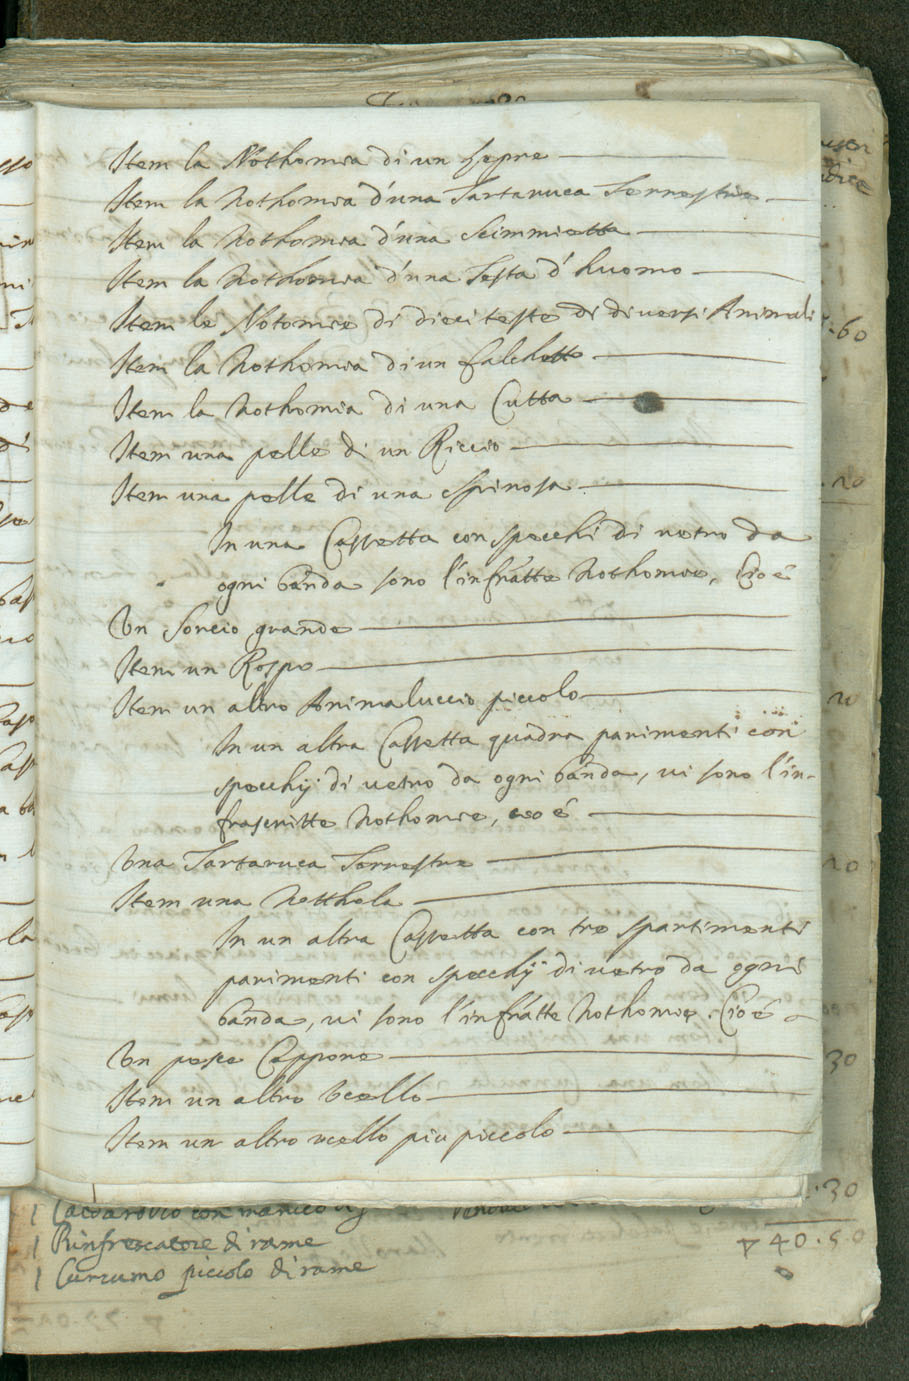 Item la Nothomia di un Lepre
Item la Nothomia d'una Tartaruca Terrestre
Item la Nothomia d'una Scimmietta
Item la Nothomia d'una Testa d'huomo
Item le Notomie di dieci teste di diversi Animali
Item la Nothomia di un falchetto
Item la Nothomia di una Cutta
Item una pelle di un Riccio
Item una pelle di una spinosa
In una Cassetta con specchi di vetro da
ogni banda sono l'infratte Nothomie, Cioè
Un Sorcio grande
Item un Rospo
Item un altro Animaluccio piccolo
In un altra Cassetta quadra parimenti con
specchij di vetro da ogni banda, vi sono l'in-
frascritte Nothomie, cioè
Una Tartaruca Terrestre
Item una Notthola
In un altra Cassetta con tre spartimenti
parimenti con specchij di vetro da ogni
banda, vi sono l'infratte Nothomie. Cioè
Un pesce Cappone
Item un altro Ucello
Item un altro ucello più piccolo
60
20
20
20
30
30
con manico
1 Rinfrescatore di rame
40.50
1 Cucumo piccolo di rame